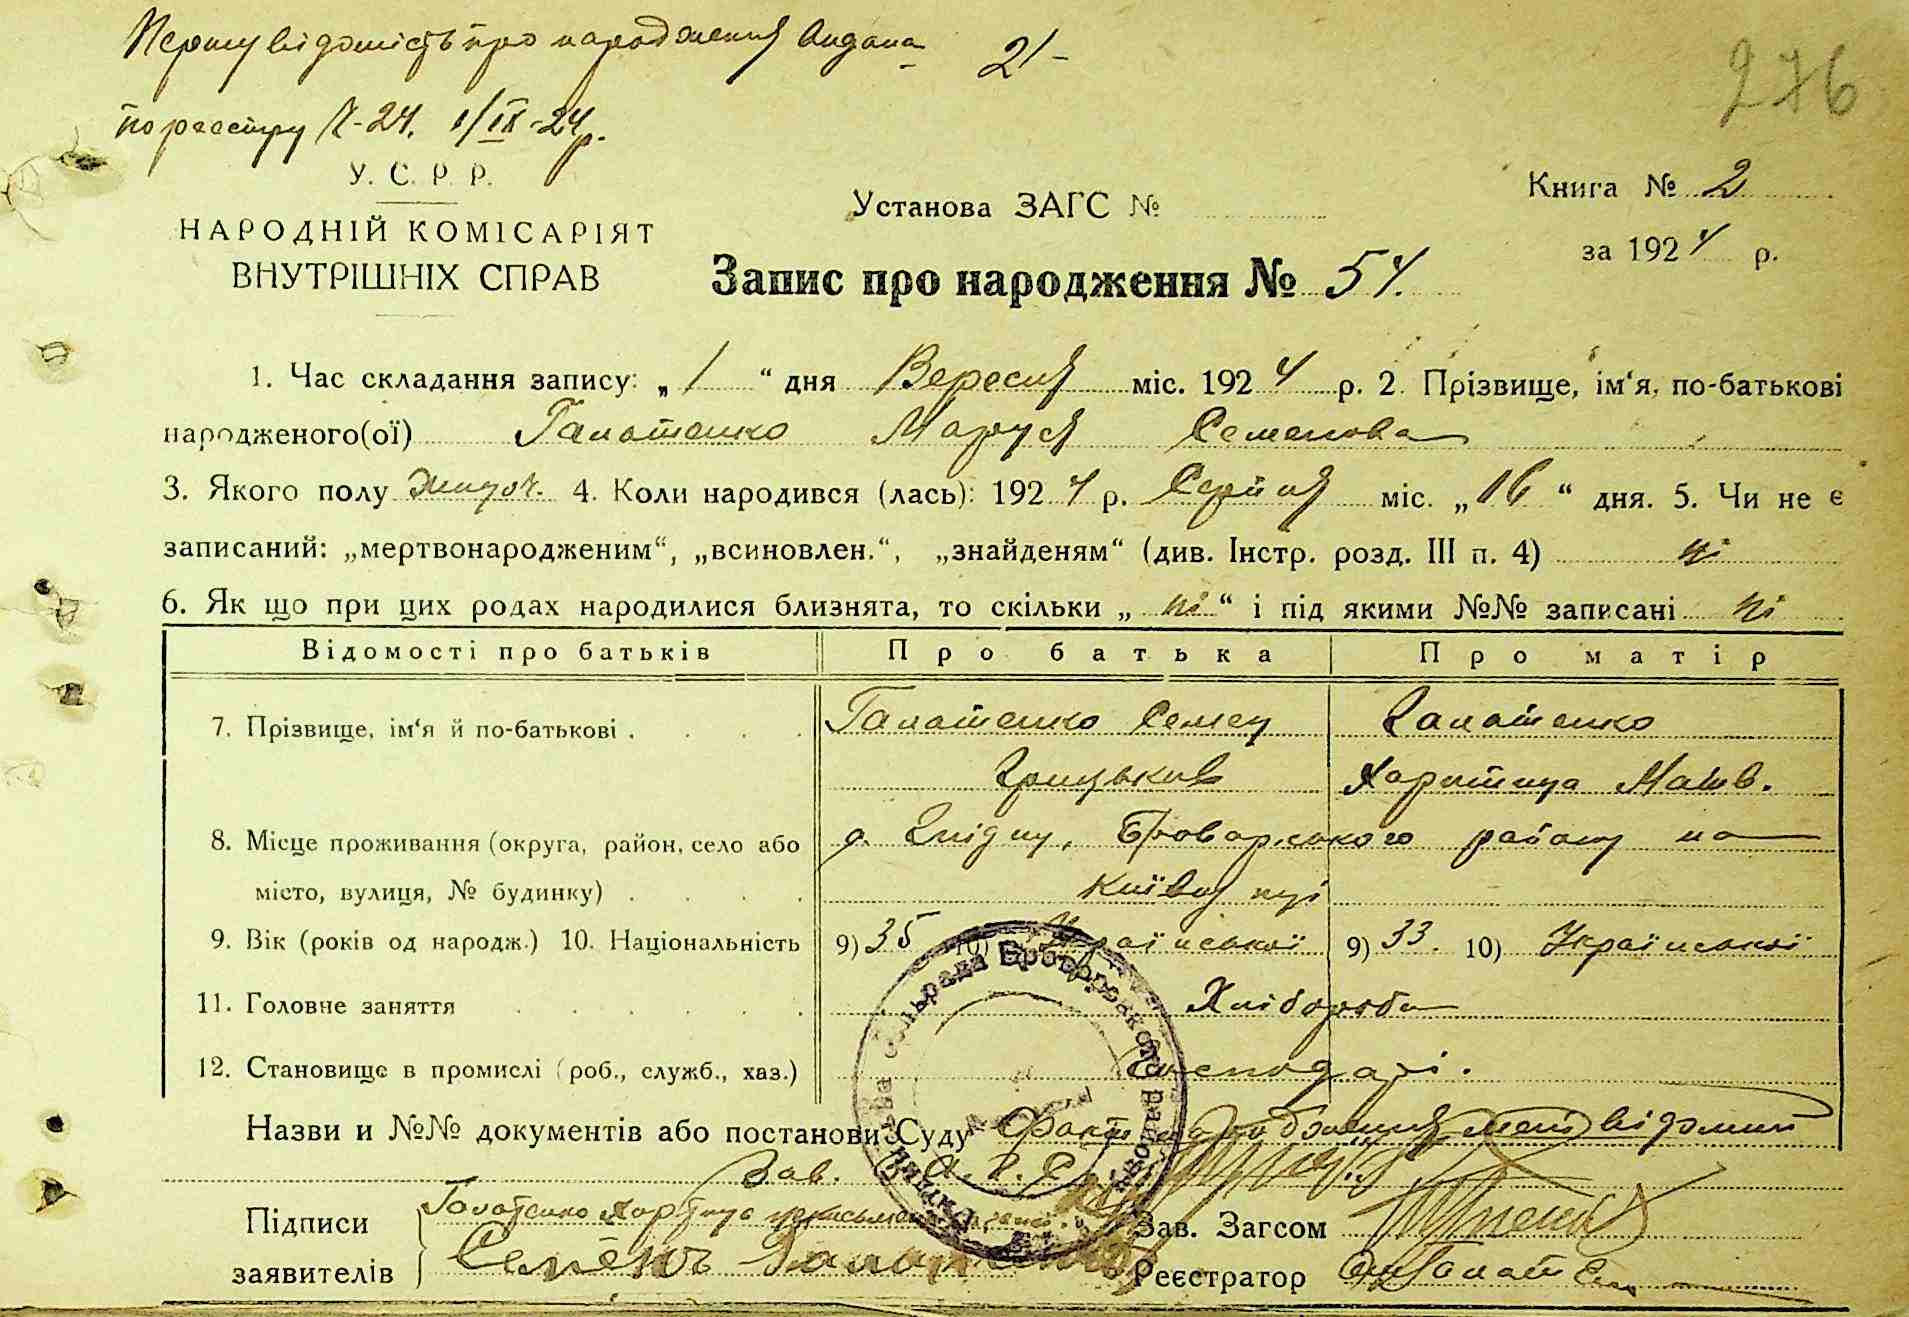 Першу відомість про народження видана 2/-
по реєстру №-24. 1/IX-24 р.
276
У. С. Р. Р.
НАРОДНІЙ КОМІСАРІЯТ
ВНУТРІШНІХ СПРАВ
Установа ЗАГС №
Книга № 2
за 1924 р.
Запис про народження № 54.
1. Час складання запису: „1“ дня Вересня міс. 1924 р. 2. Прізвище, ім‘я, по-батькові
народженого(ої) Галатенко Маруся Семенова
3. Якого полу жіноч. 4. Коли народився (лась): 1924 р. Серпня міс. „16“ дня. 5. Чи не є
записаний: „мертвонародженим“, „всиновлен.“, „знайденям“ (див. Інстр. розд. III п. 4) ні
6. Як що при цих родах народилися близнята, то скільки „ні“ і під якими №№ записані ні
Відомості про батьків Про батька Про матір
7. Прізвище, ім‘я й по-батькові . . . . Галатенко Семен Галатенко
Грицьків Харитина Матв.
8. Місце проживання (округа, район, село або с. Гнідин, Броварського району на
місто, вулиця, № будинку) . . . . Київщині
9. Вік (років од народж.) 10. Національність 9) 35 10) Української 9) 33. 10) Української
11. Головне заняття . . . . . . Хлібороба
12. Становище в промислі (роб., служб., хаз.) Господарі.
Назви и №№ документів або постанови Суду Факт народження мені відомий
Зав.
Підписи Галатенко Харитина
заявителів Семёнъ Галатенко
Зав. Загсом
Реєстратор Галатен